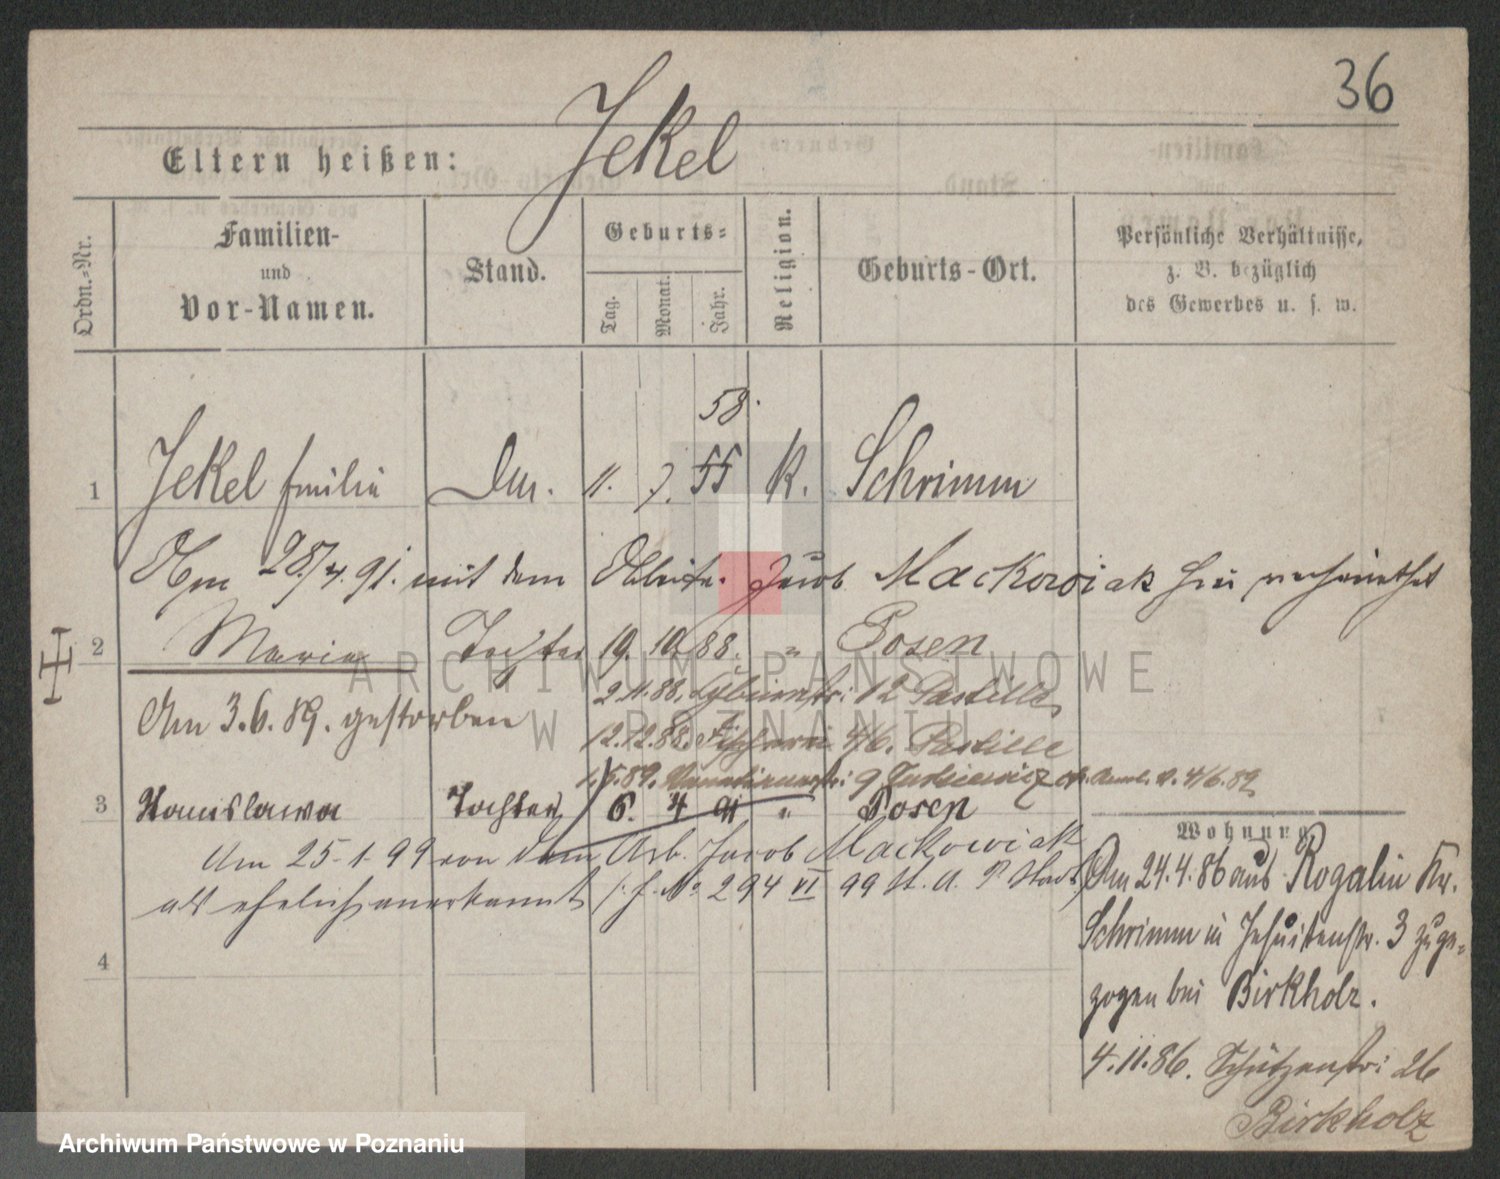 36
Eltern heißen: Jekel
Ordn.-Nr.
Familien-
und
Vor-Namen.
Stand.
Geburts-
Tag.
Monat.
Jahr.
Religion.
Geburts-Ort.
Persönliche Verhältnisse,
z. B. bezüglich
des Gewerbes u. s. w.
58.
1 Jekel Emilie 11. 7. 55 K. Schrimm
Am 28/4. 91. mit dem Arbeiter Jacob Mackowiak hier verheirathet
2 Maria Tochter 19. 10. 88. " Posen
2.11.88. 12 Pastille
Am 3.6.89. gestorben
12.12.88. Fischerei 4/6. Pastille
1.5.89. 9 4/6.89
3 Stanislawa Tochter 6. 4 91 " Posen
Wohnung
Am 25-1-99 von dem Arb. Jacob Mackowiak
als ehelich anerkannt No 294 VI 99
Am 24.4.86 aus Rogalin Kr.
Schrimm in Jesuitenstr. 3 zuge-
zogen bei Birkholz.
4
4.11.86. Schützenstr: 26
Birkholz
ARCHIWUM PAŃSTWOWE
W POZNANIU
Archiwum Państwowe w Poznaniu